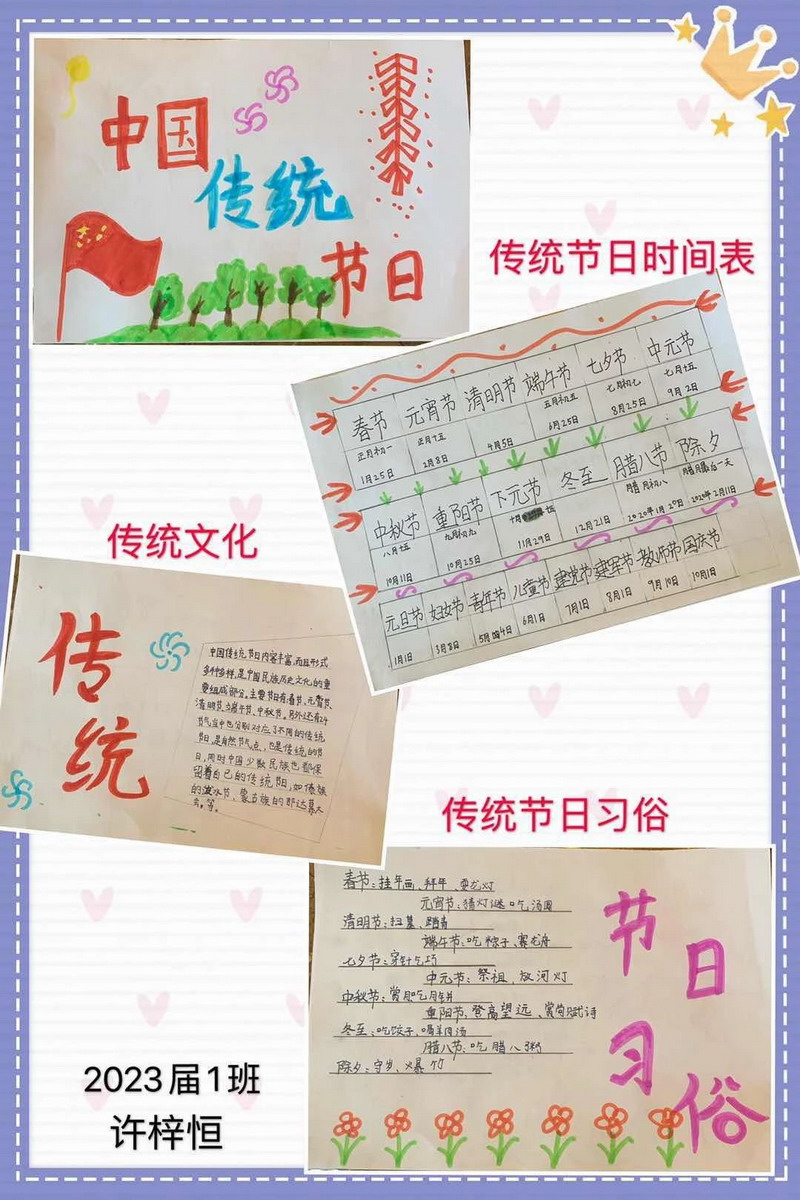 中国
传统
节日
传统节日时间表
春节 元宵节 清明节 端午节 七夕节 中元节
正月初一 正月十五 五月初五 七月初七 七月十五
1月25日 2月8日 4月5日 6月25日 8月25日 9月2日
中秋节 重阳节 下元节 冬至 腊八节 除夕
八月十五 九月初九 十月 十五 腊月初八 腊月最后一天
10月11日 10月25日 11月29日 12月21日 2020年1月27日 2020年2月11日
元旦节 妇女节 青年节 儿童节 建党节 建军节 教师节 国庆节
1月1日 3月8日 5月4日 6月1日 7月1日 8月1日 9月10日 10月1日
传统文化
传统
中国传统节日内容丰富,而且形式
多种多样,是中国民族历史文化的重
要组成部分。主要节日有:春节、元宵节、
清明节、端午节、中秋节。另外还有24
节气当中也分别对应了不同的传统
节日,是自然节气点,也是传统的节
日,同时中国少数民族也都保
留着自己的传统节日,如傣族
的泼水节、蒙古族的那达慕大
会。等。
传统节日习俗
春节:挂年画、拜年、耍龙灯
元宵节:猜灯谜吃汤圆
清明节:扫墓、踏青
端午节:吃粽子、赛龙舟
七夕节:穿针乞巧
中元节:祭祖、放河灯
中秋节:赏月吃月饼
重阳节:登高望远、赏菊赋诗
冬至:吃饺子、喝羊肉汤
腊八节:吃腊八粥
除夕:守岁、爆竹
节日
习俗
2023届1班
许梓恒